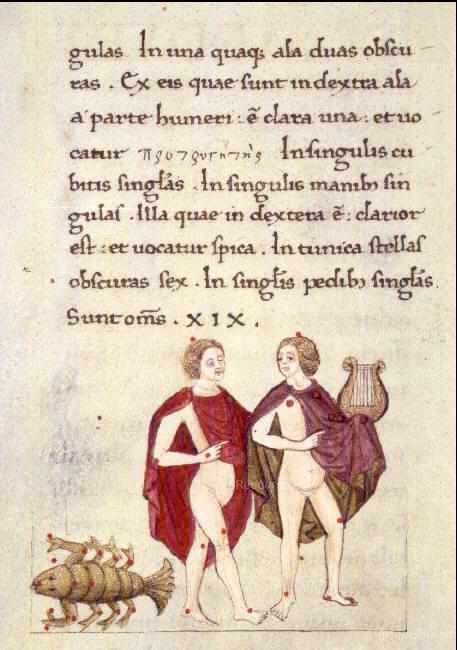 gulas. In una quaq; ala duas obscu
ras. Ex eis quae sunt in dextra ala
a parte humeri: ē clara una: et uo
catur In singulis cu
bitis singl̃as. In singulis manib; sin
gulas. Illa quae in dextera ē: clarior
est: et uocatur spica. In tunica stellas
obscuras sex. In singl̃is pedib; singl̃as.
Sunt om̃s. XIX.